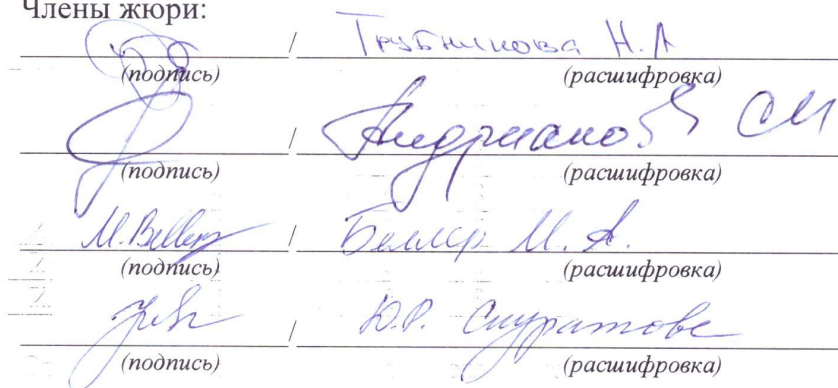 Члены жюри:
/ Трубникова Н.А
(подпись) (расшифровка)
/ Андрианов СИ
(подпись) (расшифровка)
M. Beller / Беллер М.А.
(подпись) (расшифровка)
/ Ю.Р. Скуратова
(подпись) (расшифровка)